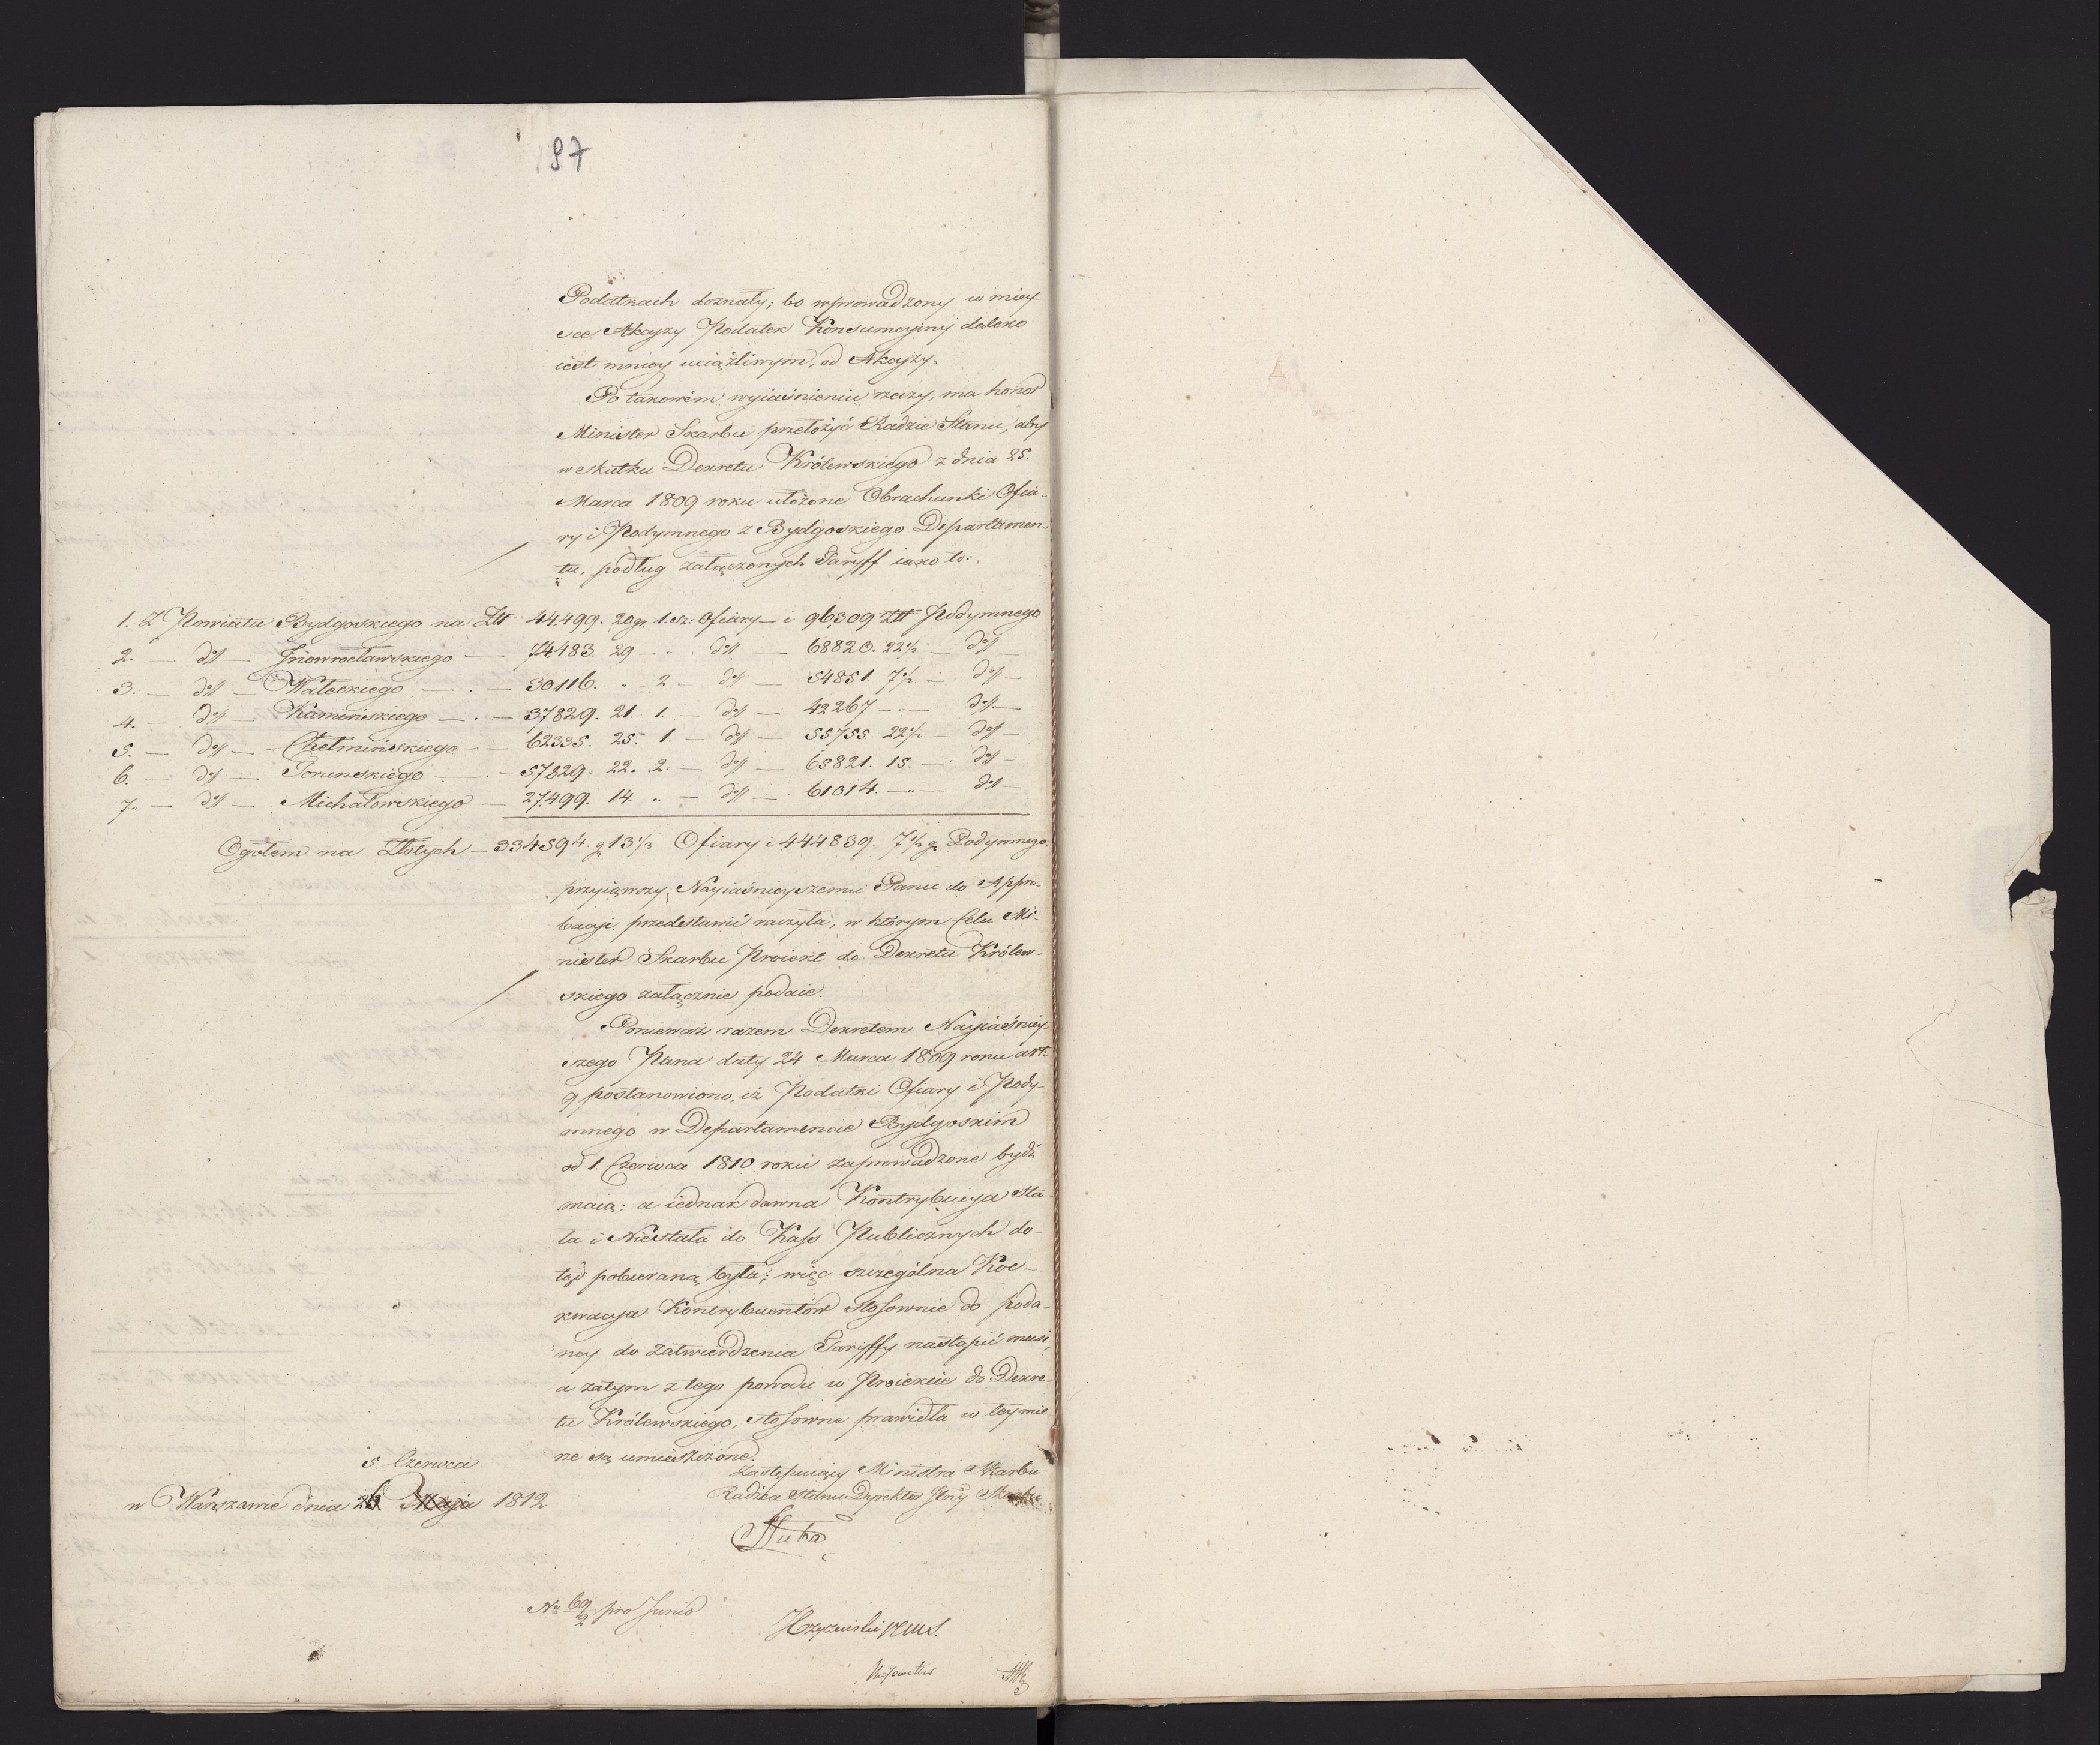 97
Podatkach doznały; bo wprowadzony w miey-
sce Akcyzy Podatek Konsumcyiny daleko
iest mniey uciążliwym, od Akcyzy.
Po takowém wyiaśnieniu rzeczy, ma honor
Minister Skarbu przełożyć Radzie Stanu, aby
w skutku Dekretu Królewskiego z dnia 25.
Marca 1809 roku ułożone Obrachunki Ofia-
ry i Podymnego z Bydgoskiego Departamen-
tu, podług załączonych Taryff iako to:
1. Z Powiatu Bydgoskiego na Złt 44,499. 20 gr. 1. sz: Ofiary — i 96,309 Złt Podymnego
2. — dtt — Inowrocławskiego — 74483. 29 — .. dtt — 68820. 22½ — dtt —
3. — dtt — Wałeckiego — . — 30116. .. — 2 — dtt — 54851. 7½ — dtt —
4. — dtt — Kamińskiego — . — 37829. 21. 1. — dtt — 42267 — .. — dtt —
5. — dtt — Chełmińskiego — — 62335. 25. 1. — dtt — 55755 22½ — dtt —
6. — dtt — Torunskiego — . — 57829. 22. 2. — dtt — 65821. 15. — dtt —
7. — dtt — Michałowskiego — 27,499. 14. .. — dtt — 61014. — .. — dtt —
Ogółem na Złotych — 334594. g 13⅓ Ofiary i 444839. 7½ g Podymnego.
przyiąwszy, Nayiaśnieyszemu Panu do Appro-
bacyi przedstawić raczyła, w którym Celu Mi-
nister Skarbu Proiekt do Dekretu Królew-
skiego załącznie podaie.
Ponieważ razem Dekretem Nayiaśniey-
szego Pana daty 24 Marca 1809 roku art:
9 postanowiono, iż Podatki Ofiary i Pody-
mnego w Departamencie Bydgoskim
od 1. Czerwca 1810 roku zaprowadzone bydź
maią; a iednak dawna Kontrybucya sta-
ła i Niestała do Kass Publicznych do-
tąd pobieraną była; więc szczególna Koe-
kwacya Kontrybuentów stosownie do poda-
ney do zatwierdzenia Taryffy nastąpić musi,
a zatym z tego powodu w Proiekcie do Dekre-
tu Królewskiego, stosowne prawidła w tey mie
rze są umieszczone.
5 Czerwca
w Warszawie dnia 26 Maja 1812.
Zastępuiący Ministra Skarbu
Radca Stanu Dyrektor Jlny Skarbu
No 69/2 pro Junio